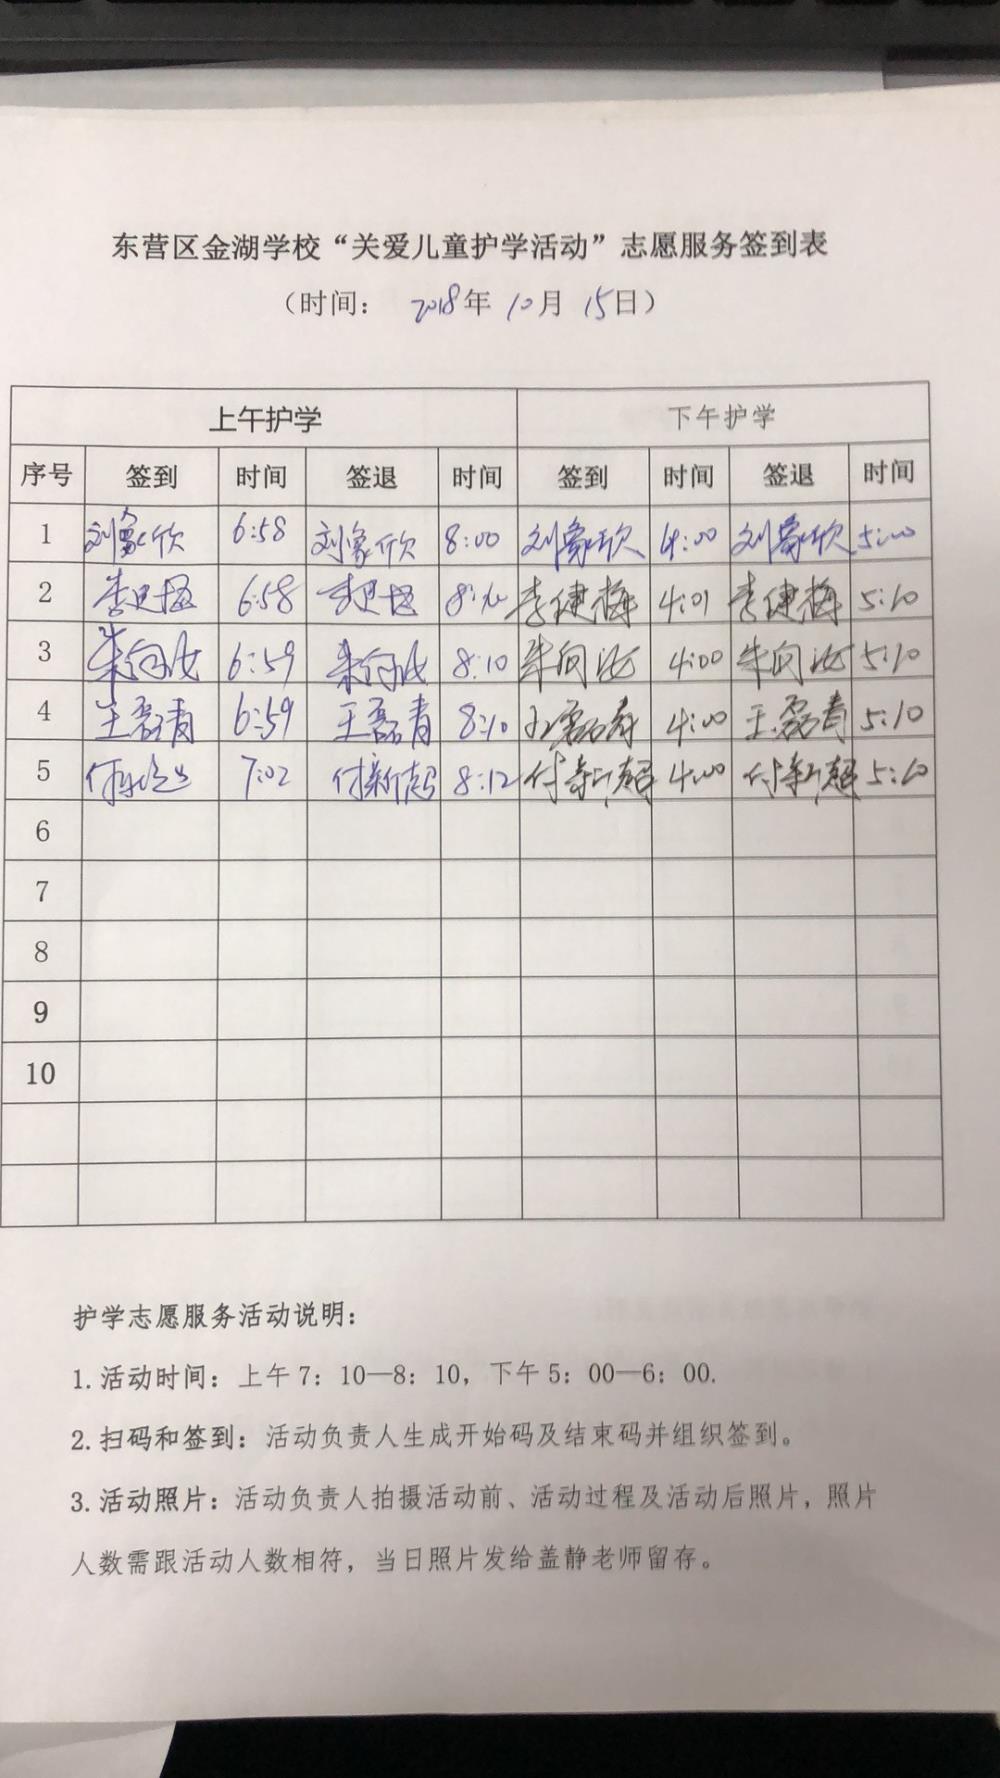 东营区金湖学校“关爱儿童护学活动”志愿服务签到表
（时间： 2018年 10月 15日）
上午护学 下午护学
序号 签到 时间 签退 时间 签到 时间 签退 时间
1 刘家欣 6:58 刘家欣 8:00 刘家欣 4:00 刘家欣 5:00
2 6:58 李建梅 4:01 李建梅 5:10
3 朱向汝 6:59 朱向汝 8:10 朱向汝 4:00 朱向汝 5:10
4 王磊青 6:59 王磊青 8:10 王磊青 4:00 王磊青 5:10
5 付新超 7:02 付新超 8:12 付新超 4:00 付新超 5:10
6
7
8
9
10
护学志愿服务活动说明：
1.活动时间：上午 7：10—8：10，下午 5：00—6：00.
2.扫码和签到：活动负责人生成开始码及结束码并组织签到。
3.活动照片：活动负责人拍摄活动前、活动过程及活动后照片，照片
人数需跟活动人数相符，当日照片发给盖静老师留存。